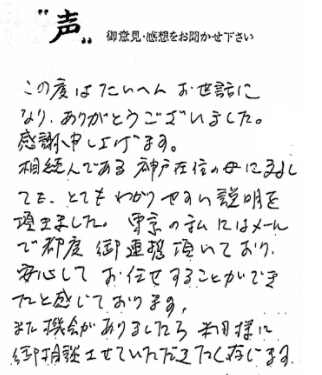 "声" 御意見・感想をお聞かせ下さい
この度はたいへん お世話に
なり、ありがとうございました。
感謝申し上げます。
相続人である 神戸在住の母にましまし
ても、とてもわかりやすい説明を
頂きました。 東京の私にはメール
で都度 御連絡頂いており、
安心して お任せすることができ
たと感じております。
また機会がありましたら 様に
御相談させていただきたく存じます